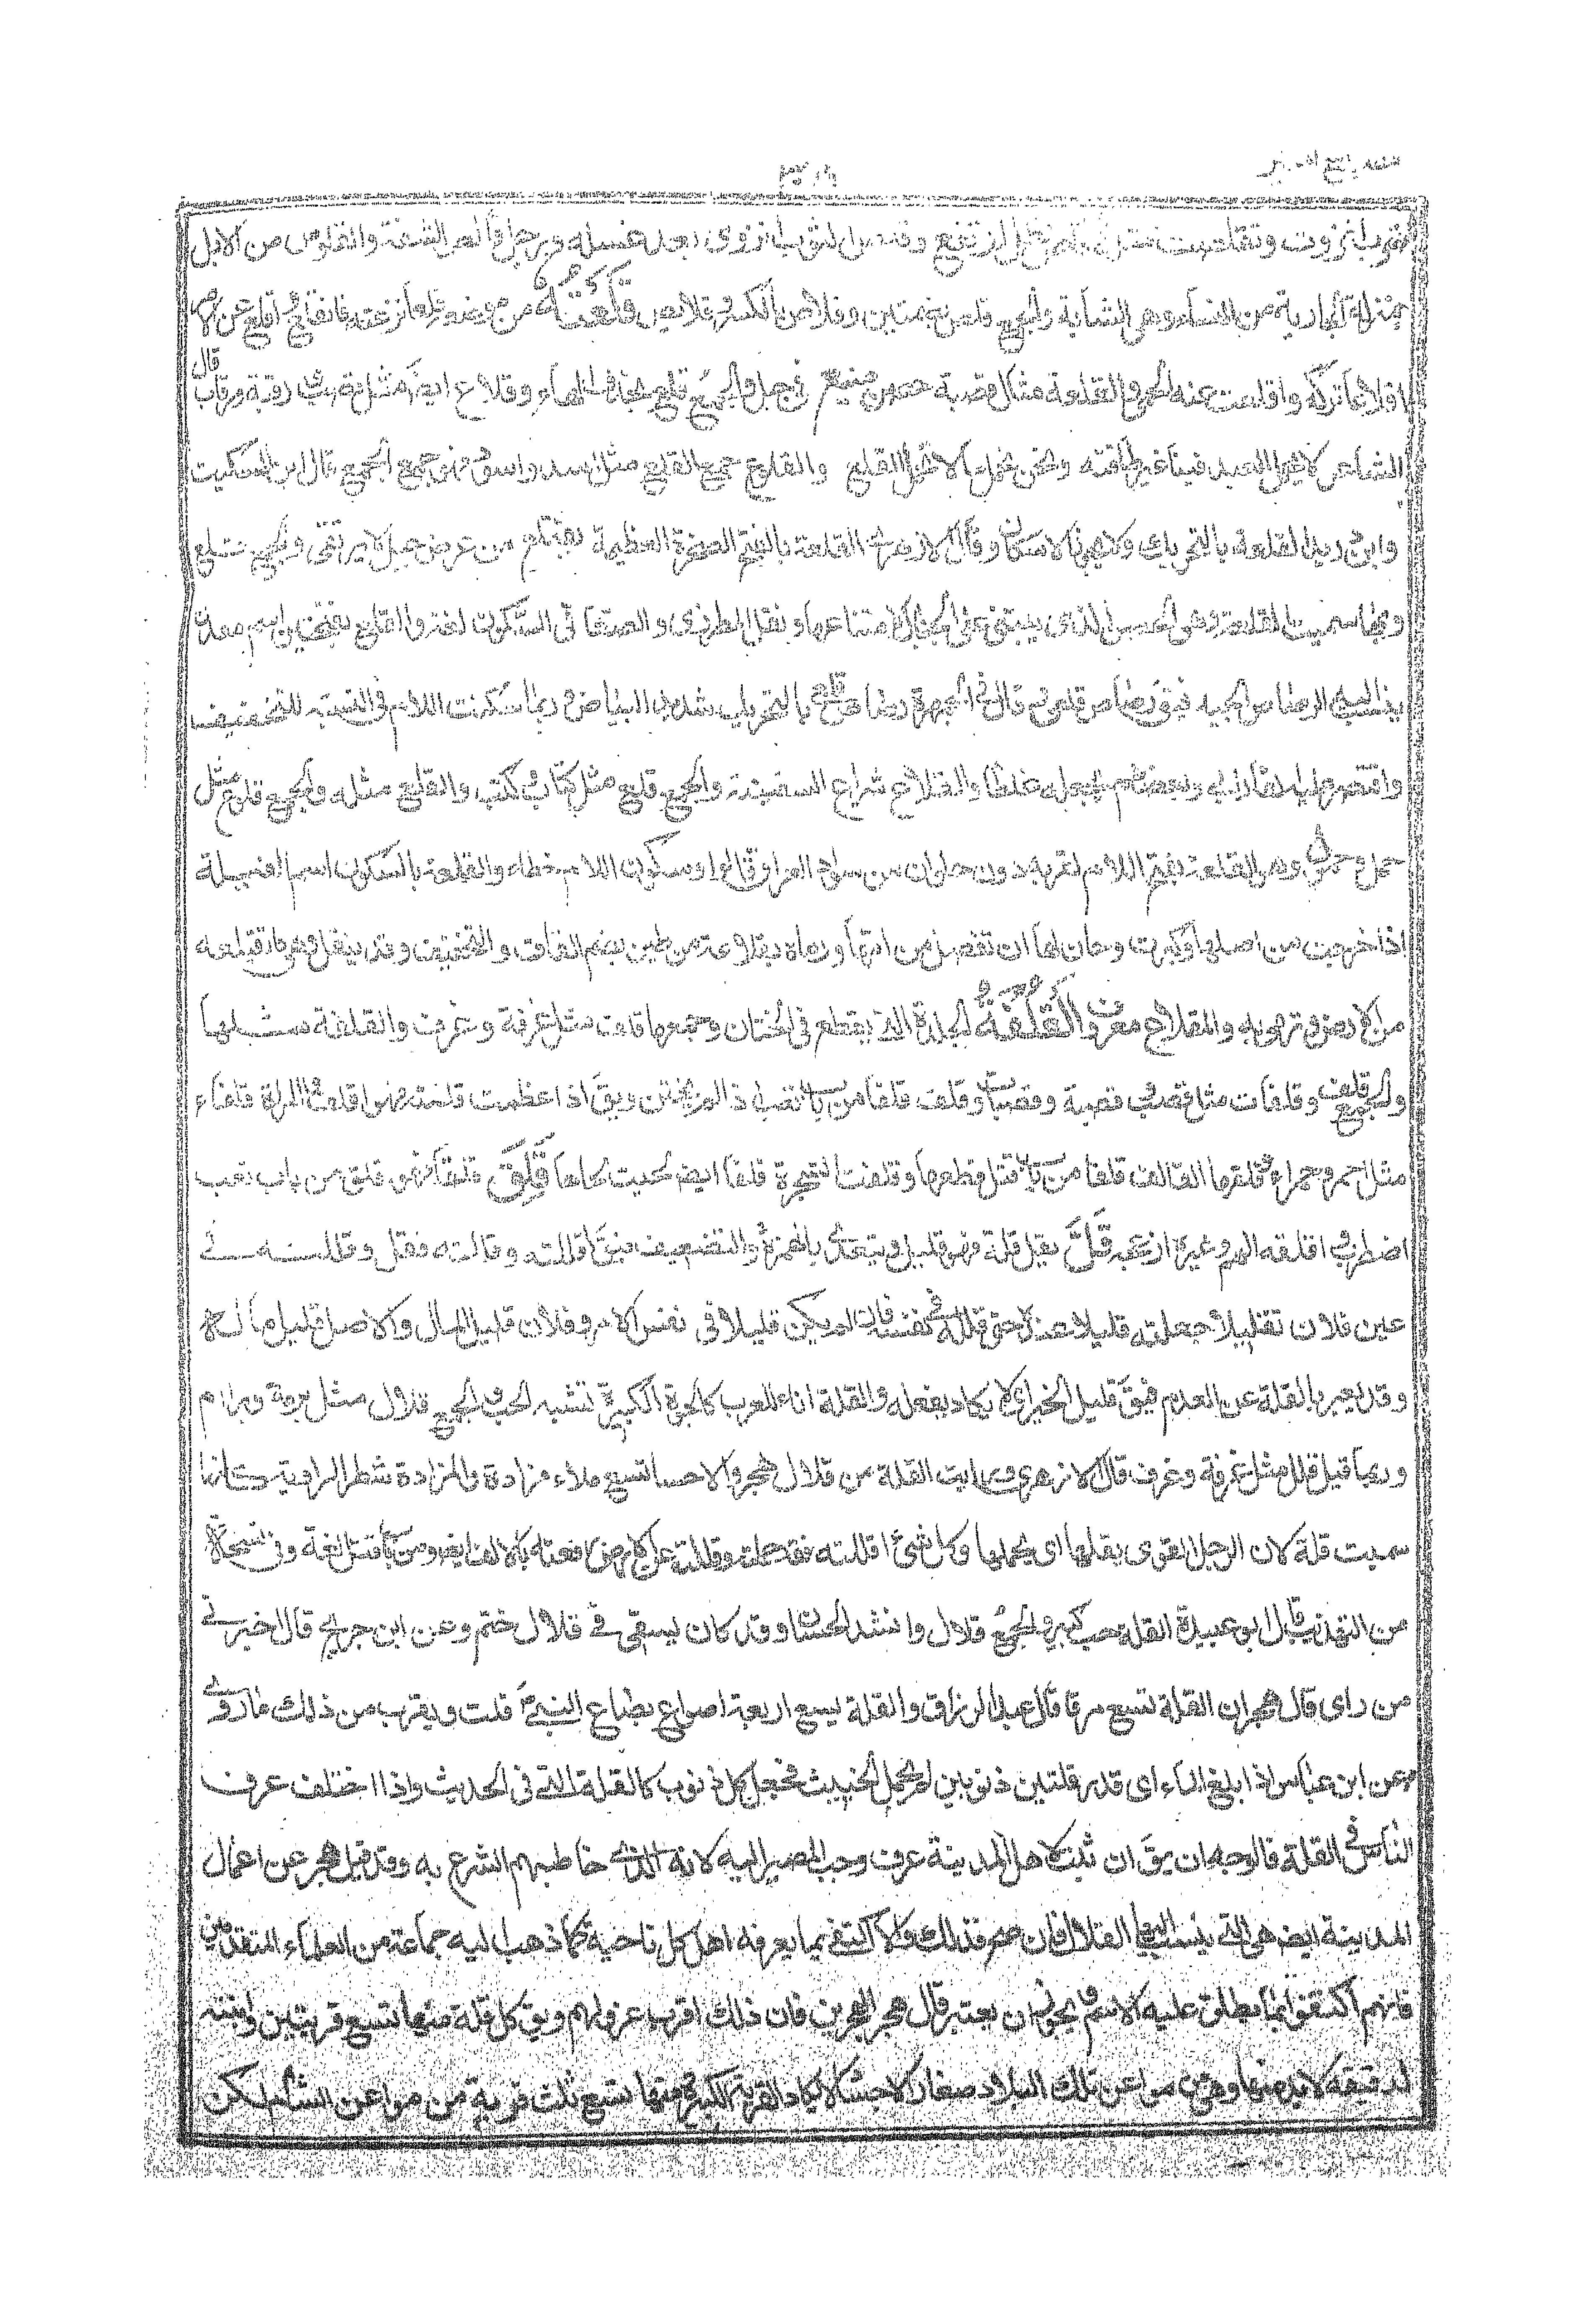 بمنزلة الجارية من النساء وهى الشابة والجمع قلص بضمتين وقلاص بالكسر وقلائص قلعته من موضعه قلعا نزعته فانقلع واقلع عن الامر
اقلاعا تركه واقلعت عنه الحمى والقلعة مثال قصبة حصن منيع فى جبل والجمع قلع بحذف الهاء وقلاع ايضا مثل رقبة ورقاب قال
الشاعر لا يحمل العبد فينا غير طاقته ونحن نحمل ما لا يحمل القلع والقلوع جمع القلع مثل اسد واسود فهو جمع الجمع قال ابن السكيت
وابن دريد القلعة بالتحريك ولا يجوز الاسكان وقال الازهرى القلعة بالفتح الصخرة العظيمة تنقلع من عرض جبل لا ترتقى والجمع قلع
وبها سميت القلعة وهى الحصن الذى يبنى على الجبال لامتناعها ونقل المطرزى والصغانى السكون لغة والقلع بفتحتين اسم معدن
ينسب اليه الرصاص الجيد فيق رصاص قلعى وقال فى الجمهرة رصاص قلعى بالتحريك شديد البياض وربما سكنت اللام فى النسبة للتخفيف
واقتصر عليه الفارابى وبعضهم يجعله غلطا والقلاع شراع السفينة والجمع قلع مثل كتاب وكتب والقلع مثله والجمع قلوع مثل
حمل وحمول ومرج القلعة بفتح اللام لقرية دون حلوان من سواد العراق قالوا وسكون اللام خطاء والقلعة بالسكون اسم للفسيلة
اذا خرجت من اصلها وكبرت وحان لها ان تفصل من امها ورماه بقلاعة من طين بضم القاف والتخفيف وقد يثقل وهى ما تقتلعه
من الارض وترمى به والمقلاع معروف القلفة الجلدة التى تقطع فى الختان وجمعها قلف مثل غرفة وغرف والقلفة مثلها
والجمع قلف وقلفات مثل قصب وقصبة وقصبات وقلف قلفا من باب تعب اذا لم يختتن ويق اذا عظمت قلفته فهو اقلف والمراة قلفاء
مثل احمر وحمراء وقلفها القالف قلفا من باب قتل قطعها وقلفت الشجرة قلفا ايض نحيت لحاءها قلق قلقا فهو قلق من باب تعب
اضطرب واقلقه الهم وغيره ازعجه قل يقل قلة فهو قليل ويتعدى بالهمزة والتضعيف فيق اقللته وقللته فقل وقللته فى
عين فلان تقليلا جعلته قليلا عنده حتى قلله فى نفسه وان لم يكن قليلا فى نفس الامر وفلان قليل المال والاصل قليل ماله
وقد يعبر بالقلة عن العدم فيق قليل الخير اى لا يكاد يفعله والقلة اناء للعرب كالجرة الكبيرة تشبه الحب والجمع قلال مثل برمة وبرام
وربما قيل قلل مثل غرفة وغرف قال الازهرى ورايت القلة من قلال هجر والاحسا تسع ملاء مزادة والمزادة شطر الراوية كانها
سميت قلة لان الرجل القوى يقلها اى يحملها وكل شئ اقللته فقد حملته وقللته عن الارض رفعته بالالف ايض ومن باب قتل لغة وفى نسخة
من التهذيب قال ابو عبيدة القلة حب كبير والجمع قلال وانشد لحسان وقد كان يسقى فى قلال وختم وعن ابن جريج قال اخبرنى
من راى قلال هجر ان القلة تسع فرقا قال عبد الرزاق والفرق يسع اربعة اصواع بصاع النبى قلت ويقرب من ذلك ما روى
عن ابن عباس اذا بلغ الماء اى قدر قلتين ذنوبين لم يحمل الخبث فجعل كل ذنوب كالقلة التى فى الحديث واذا اختلف عرف
الناس فى القلة فالوجه ان يق ان ثبت لاهل المدينة عرف وجب المصير اليه لانه الذى خاطبهم الشرع به وقد قيل هجر عن اعمال
المدينة ايض هى التى ينسب اليها القلال فان صح فذلك والا اكتفى بما يعرفه اهل كل ناحية كما ذهب اليه جماعة من العلماء المتقدمين
فانهم اكتفوا بما يطلق عليه الاسم ويجوز ان يعتبر قلال هجر البحرين فان ذلك اقرب عرف لهم ويق كل قلة منها تسع قربتين وابنته
لدقيقة لا بد منها وهى مواعين تلك البلاد صغار الاجسام لا تكاد القربة الكبيرة منها تسع ثلث قربة من مواعين الشام لكن